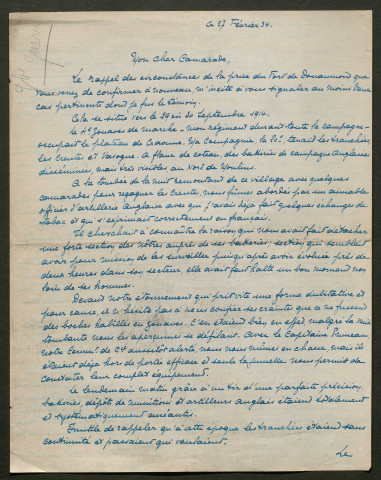 le 27 Février 34.
Mon cher Camarade,
Le rappel des circonstances de la prise du Fort de Douaumont que
vous venez de confirmer à nouveau, m'incite à vous signaler au moins deux
cas pertinents dont je fus le témoin.
Cela se situe vers le 29 ou 30 Septembre 1914.
Le Zouaves de marche - mon régiment durant toute la campagne -
occupait le plateau de Craonne. Ma Compagnie, la tenait les tranchées,
les Creute et Vassogne. A flanc de coteau, des batteries de campagne Anglaises
disséminées, mais très visibles au Nord de Moulins.
A la tombée de la nuit remontant de ce village avec quelques
camarades pour regagner les Creute, nous fûmes abordés par un aimable
officier d'artillerie Anglaise avec qui j'avais déjà fait quelques échanges de
tabac et qui s'exprimait correctement en français.
Il cherchait à connaître la raison qui nous avait fait détacher
une forte section des nôtres auprès de ses batteries, section qui semblait
avoir pour mission de les surveiller puisqu'après avoir évolué près de
deux heures dans son secteur, elle avait fait halte un bon moment non
loin de ses hommes.
Devant notre étonnement qui prit vite une forme dubitative et
pour cause, il n'hésita pas à nous couper ses craintes que ce ne fussent
des boches habillés en zouaves. C'en était bien en effet, malgré la nuit
tombante nous les aperçumes se défilant. Avec le Capitaine
notre Comm. de Cie aussitôt alerté, nous nous mîmes en chasse, mais ils
étaient déjà hors de portée efficace et seule la jumelle nous permit de
constater leur complet équipement.
Le lendemain matin grâce à un tir d'une parfaite précision,
batteries, dépôt de munitions et artilleurs anglais étaient totalement
et systématiquement anéantis.
Inutile de rappeler qu'à cette époque les tranchées étaient sans
continuité et passaient qui voulaient.
Le